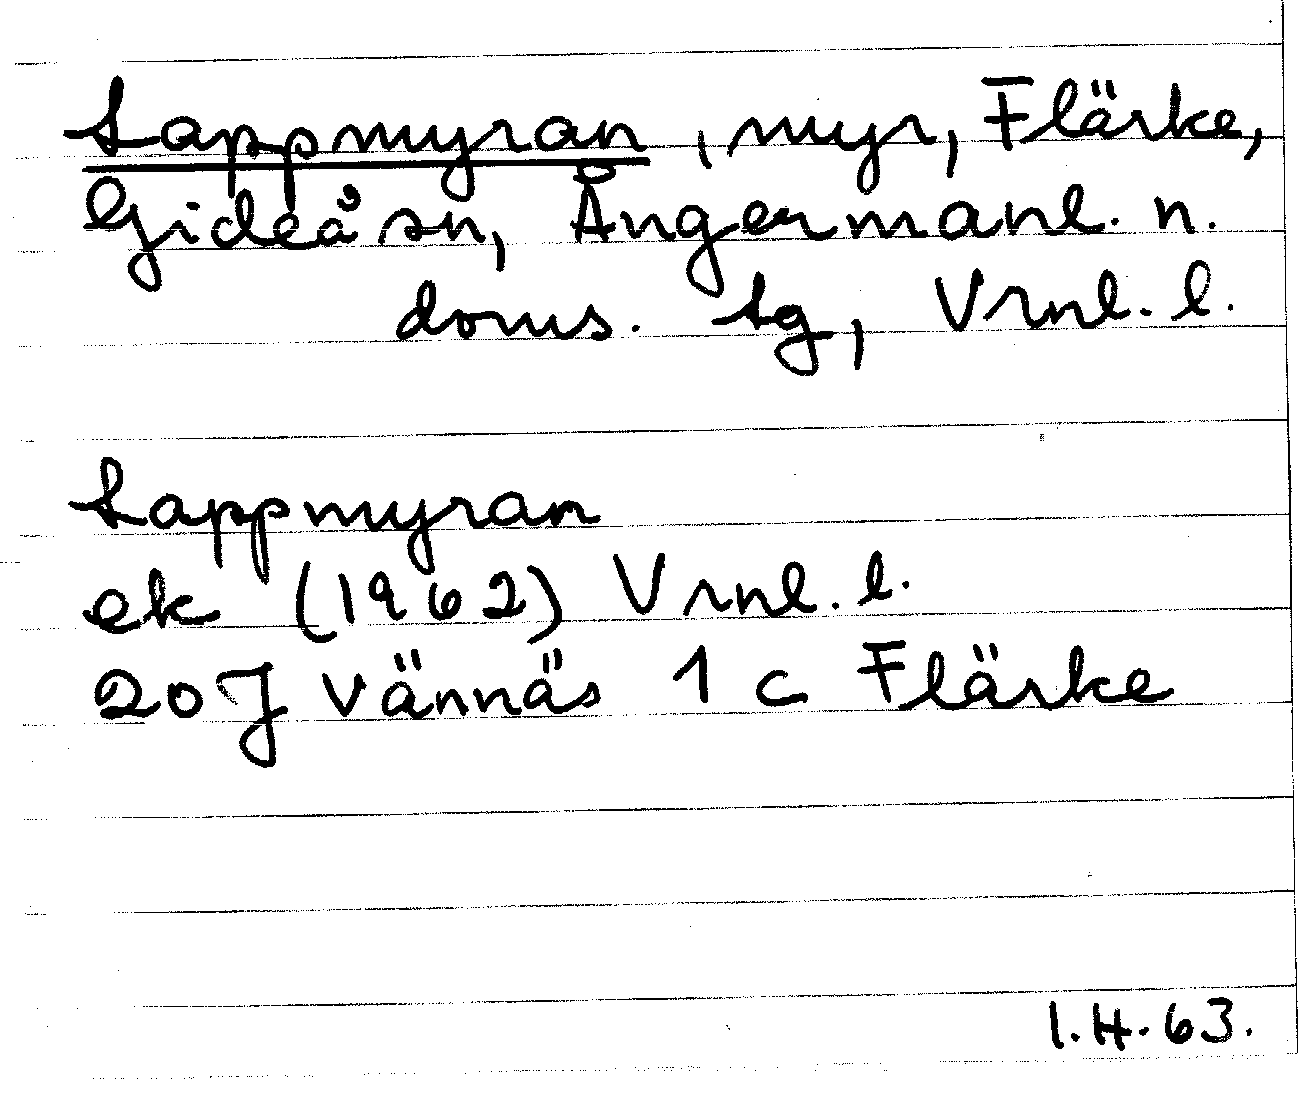 Lappmyran, myr, Flärke,
Gideå sn, Ångermanl. n.
doms. tg, Vrnl. l.
Lappmyran
ek (1962) Vrnl. l.
20 J Vännäs 1 c Flärke
I.H. 63.